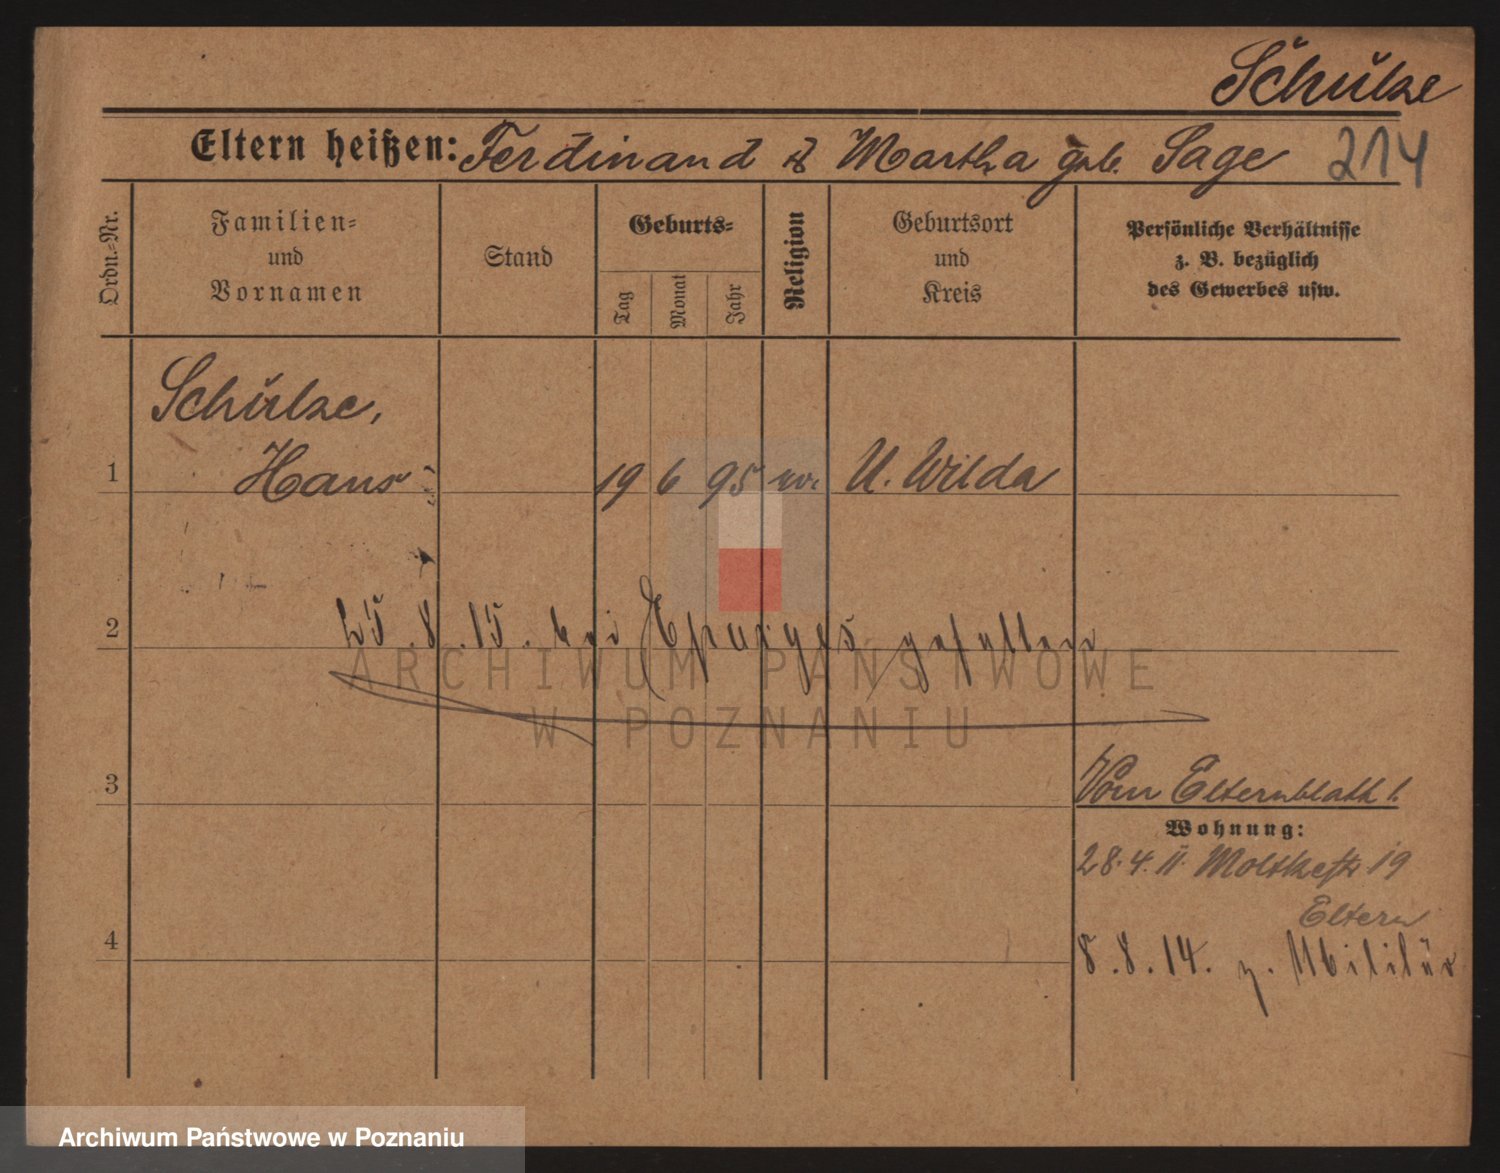 Schulze
Eltern heißen: Ferdinand & Martha geb. Sage 214
Ordn.=Nr.
Familien=
und
Vornamen
Stand
Geburts=
Tag
Monat
Jahr
Religion
Geburtsort
und
Kreis
Persönliche Verhältnisse
z. B. bezüglich
des Gewerbes usw.
Schulze,
1 Hans 19 6 95 U. Wilda
2 25.8.15. bei gefallen
ARCHIWUM PAŃSTWOWE
W POZNANIU
3 Vom Elternblatt
Wohnung:
28.4.11. Moltkestr 19
Eltern
4 8.8.14. z. Militär
Archiwum Państwowe w Poznaniu